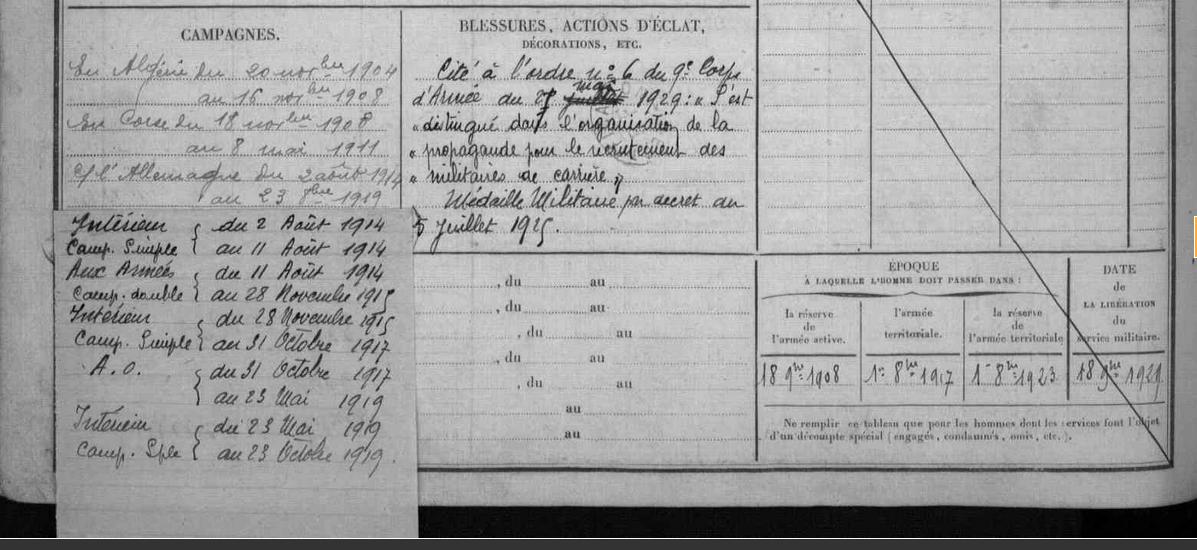 CAMPAGNES.
En Algérie du 20 novbre 1904
au 16 novbre 1908
En Corse du 18 novbre 1908
au 8 mai 1911
C/ l'Allemagne du 2 août 1914
au 23 8bre 1919
Intérieur { du 2 Août 1914
Camp. Simple { au 11 Août 1914
Aux Armées { du 11 Août 1914
Camp. double { au 28 Novembre 1915
Intérieur { du 28 Novembre 1915
Camp. Simple { au 31 Octobre 1917
A. O. { du 31 Octobre 1917
au 23 Mai 1919
Intérieur { du 23 Mai 1919
Camp. Sple { au 23 Octobre 1919.
BLESSURES, ACTIONS D'ÉCLAT,
DÉCORATIONS, ETC.
Cité à l'ordre n° 6 du 9e Corps
mai
d'Armée du 27 juillet 1929 : « S'est
« distingué dans l'organisation de la
« propagande pour le recrutement des
« militaires de carrière »
Médaille Militaire par décret du
5 Juillet 1925.
, du au
, du au
, du au
, du au
, du au
au
au
ÉPOQUE
À LAQUELLE L'HOMME DOIT PASSER DANS :
la réserve
de
l'armée active.
l'armée
territoriale.
la réserve
de
l'armée territoriale
DATE
de
LA LIBÉRATION
du
service militaire.
18 9bre 1908
1er 8bre 1917
1er 8bre 1923
18 9bre 1929
Ne remplir ce tableau que pour les hommes dont les services font l'objet
d'un décompte spécial (engagés, condamnés, omis, etc.).